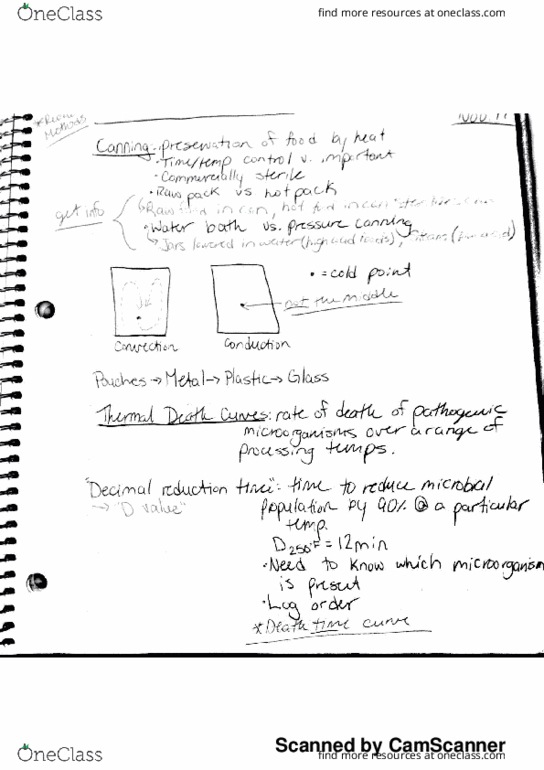 OneClass
find more resources at oneclass.com
Methods
Nov 17
Canning: preservation of food by heat
• Time/temp control v. important
• Commercially sterile
• Raw pack vs hot pack
get info
Raw food in can, hot food in can
• Water bath vs. pressure canning
Jars lowered in water (high acid foods), (low acid)
• = cold point
not the middle
Convection
Conduction
Pouches → Metal → Plastic → Glass
Thermal Death Curves: rate of death of pathogenic
microorganisms over a range of
processing temps.
"Decimal reduction time": time to reduce microbial
→ "D value"
population by 90% @ a particular
temp.
D250°F = 12min
• Need to know which microorganism
is present
• Log order
* Death time curve
Scanned by CamScanner
OneClass
find more resources at oneclass.com